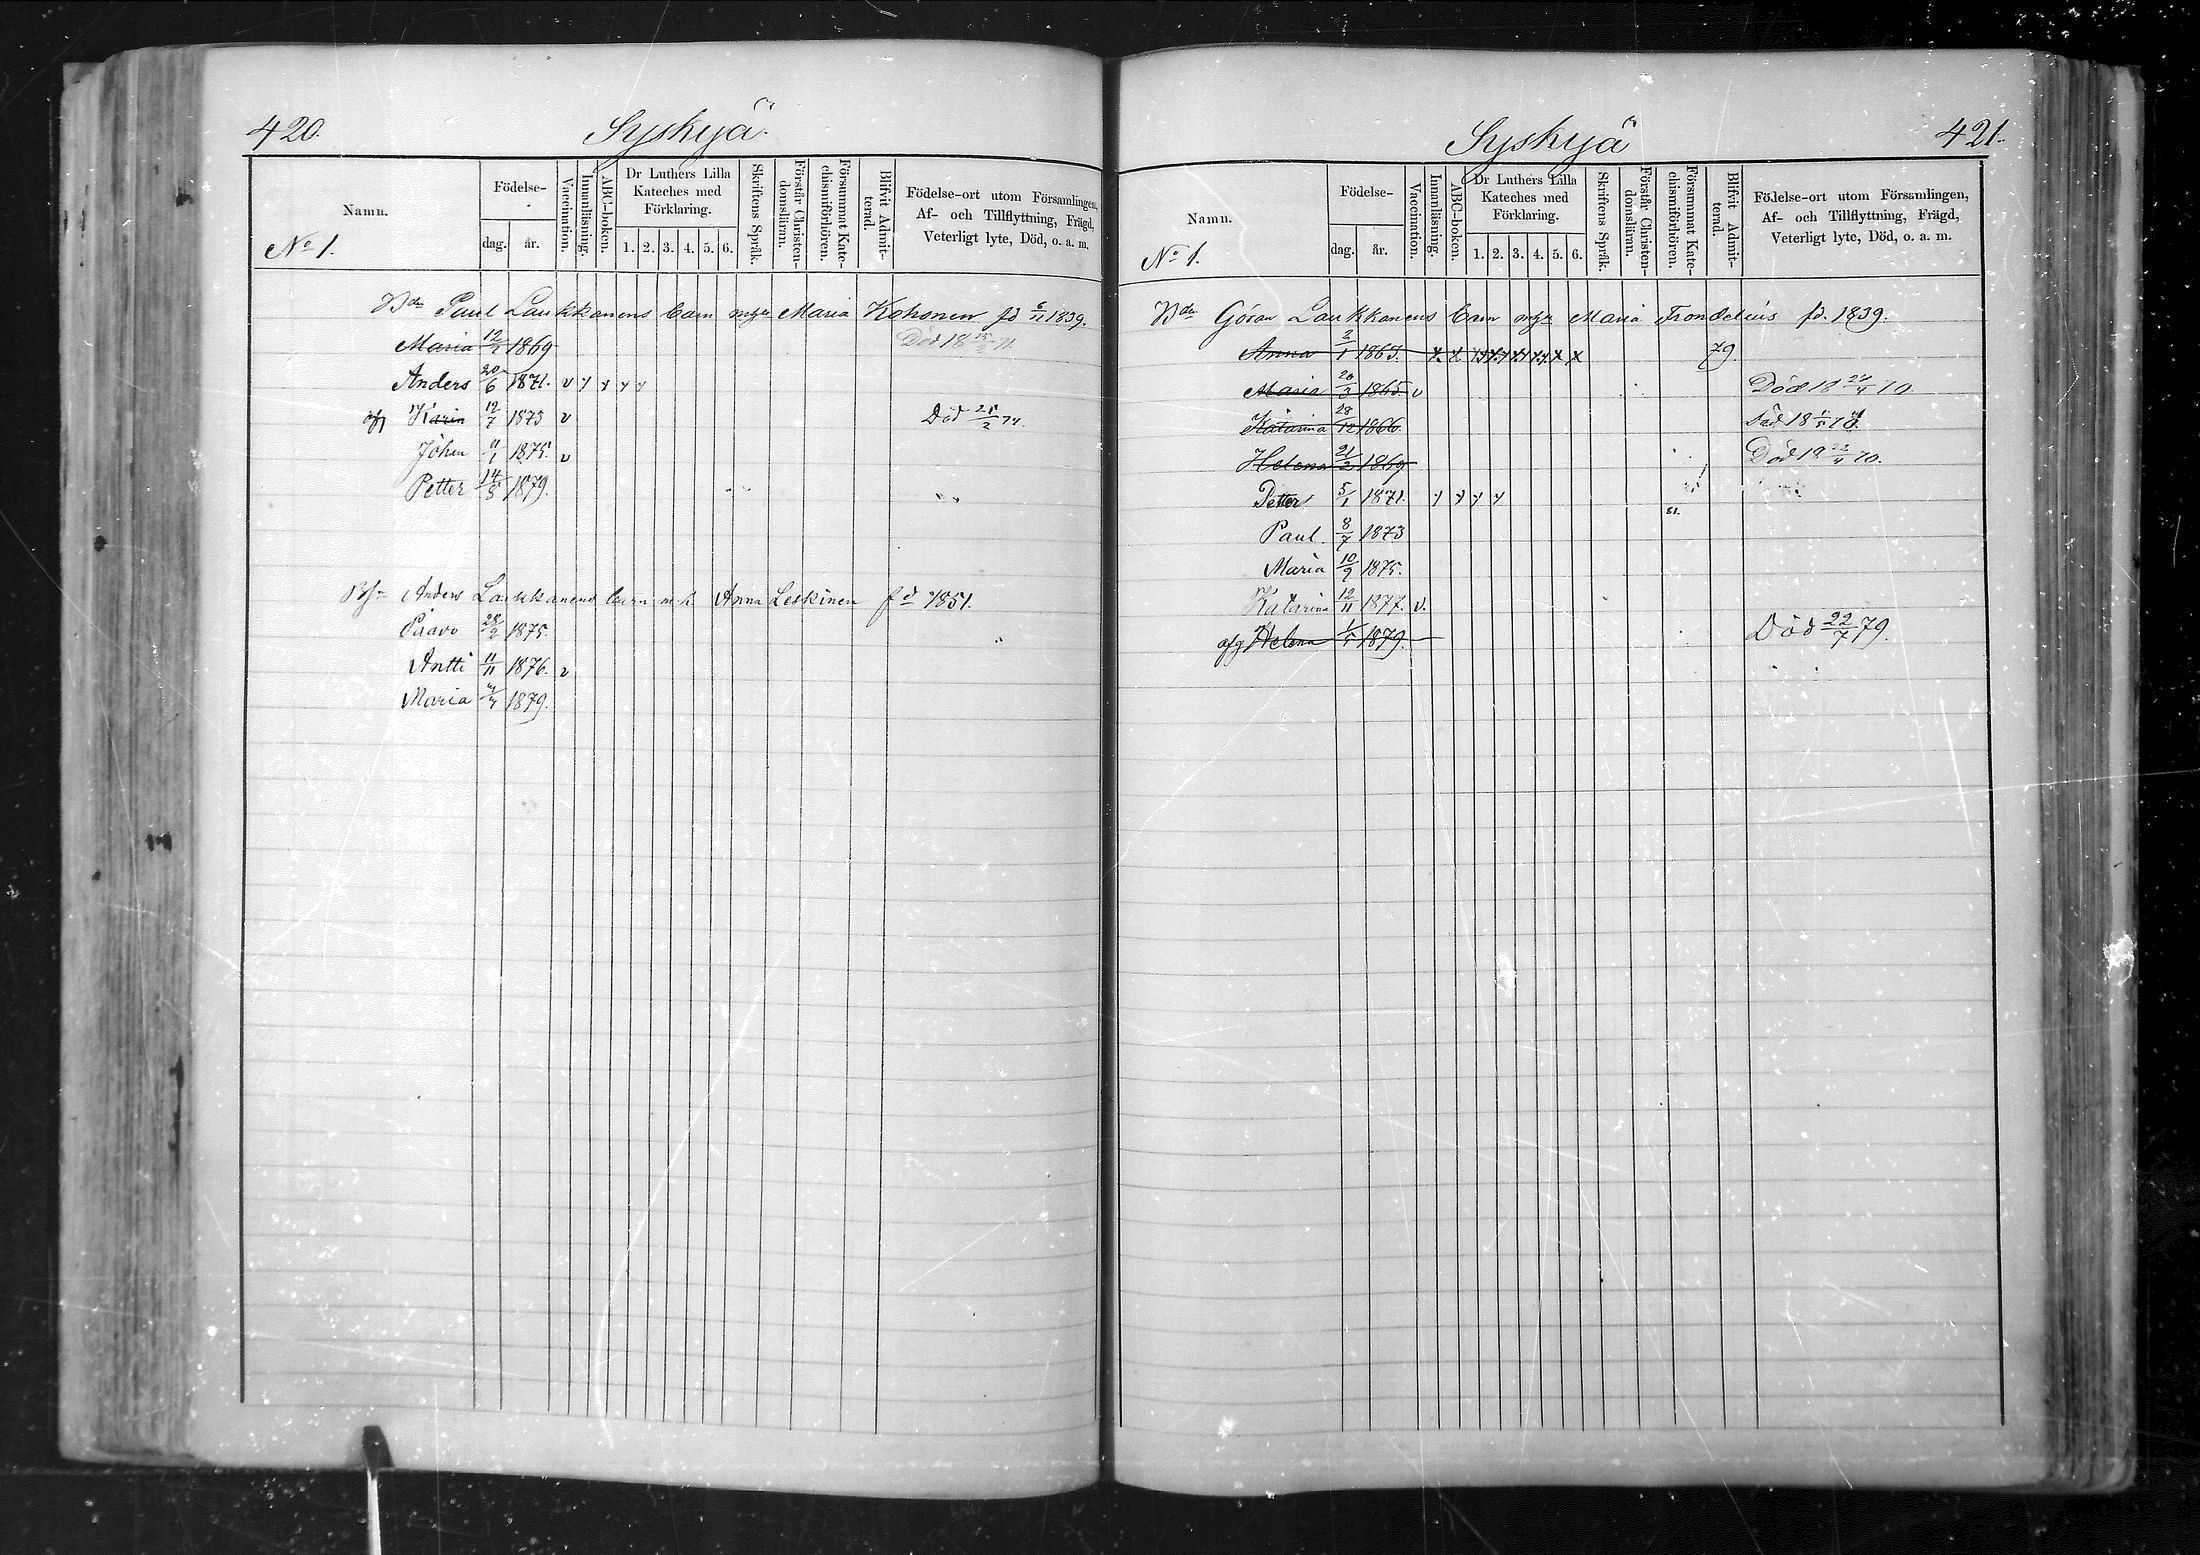 420.
Syskyä.
Namn.
No 1.
Födelse-
dag.
år.
Vaccination.
Innanläsning.
ABC-boken.
Dr Luthers Lilla
Kateches med
Förklaring.
1. 2. 3. 4. 5. 6.
Skriftens Språk.
Förstår Christen-
domsläran.
Försummat Kate-
chismiförhören.
Blifvit Admit-
terad.
Födelse-ort utom Församlingen,
Af- och Tillflyttning, Frägd,
Veterligt lyte, Död, o. a. m.
Bdn Paul Laukkanens barn m hu Maria Kohonen fd 6/11 1839.
Maria 1869 Död 18
Anders 20/6 1871. v y y y y
Karin 12/7 1873 v Död
John 11/1 1875. v
Petter 14/8 1879.
Anders Laukkanens barn m. h. Anna Leskinen fd 1851.
Paavo 28/2 1875.
Antti 11/11 1876. v
Maria 1879.
Syskyä
421.
Namn.
No 1.
Födelse-
dag.
år.
Vaccination.
Innanläsning.
ABC-boken.
Dr Luthers Lilla
Kateches med
Förklaring.
1. 2. 3. 4. 5. 6.
Skriftens Språk.
Förstår Christen-
domsläran.
Försummat Kate-
chismiförhören.
Blifvit Admit-
terad.
Födelse-ort utom Församlingen,
Af- och Tillflyttning, Frägd,
Veterligt lyte, Död, o. a. m.
Bdn Göran Laukkanens barn Maria Trondelius fd. 1839.
Anna 1863. x x 79.
Maria 1865. v Död 18 70
Katarina 28/12 1866 Död 18 70.
Helena 21/2 1869 Död 18 70.
Petter 5/1 1871. y y y y 81.
Paul 8/7 1873
Maria 10/9 1875.
Katarina 12/11 1877. v.
Helena 1/5 1879. Död 22/7 79.